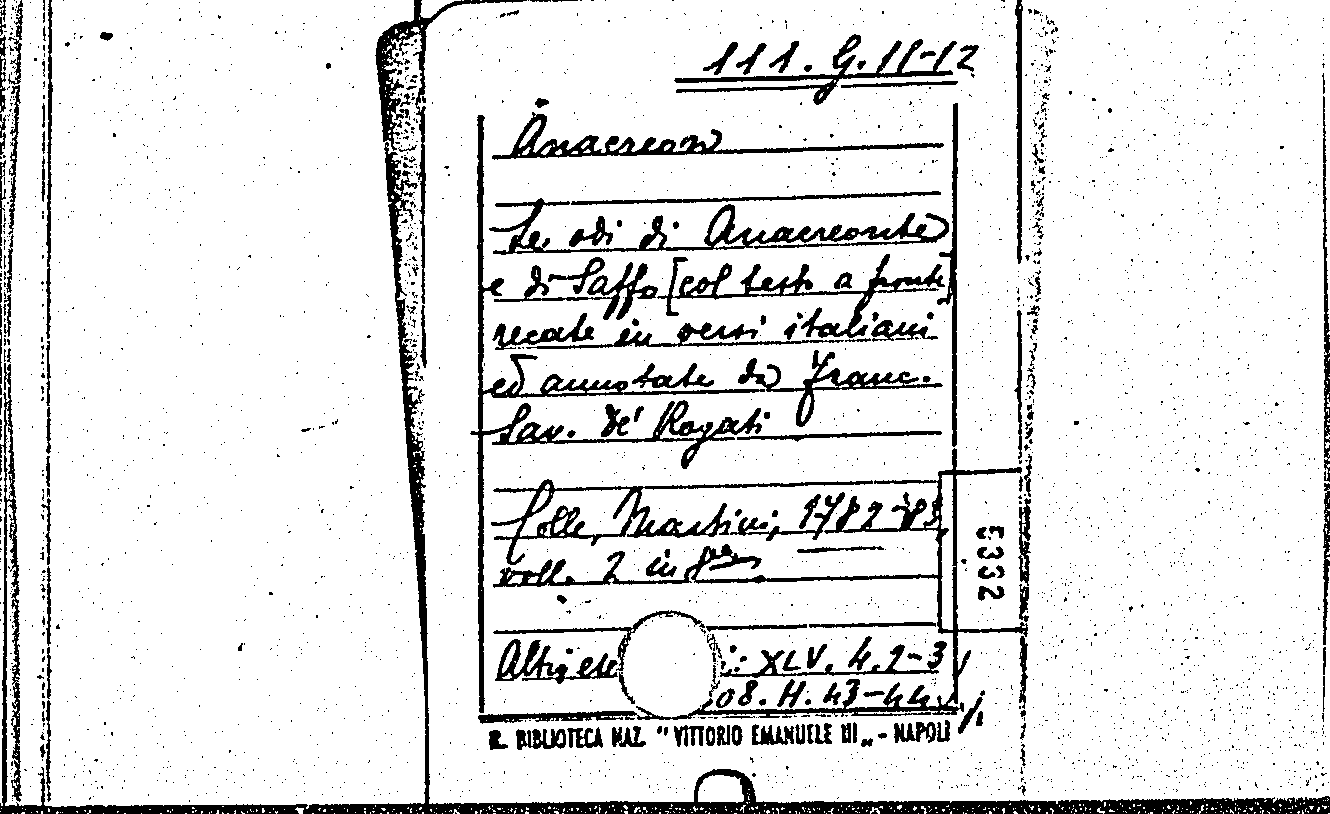 111. G. 11-12
Anacreon
Le odi di Anacreonte
e di Saffo [col testo a fronte]
recate in versi italiani
ed annotate da Franc.
Sav. de' Rogati
Colle, Martini, 1782-83,
voll. 2 in 8vo.
5332
XLV. 4. 2-3
08. H. 43-44.
R. BIBLIOTECA NAZ. "VITTORIO EMANUELE III„ - NAPOLI